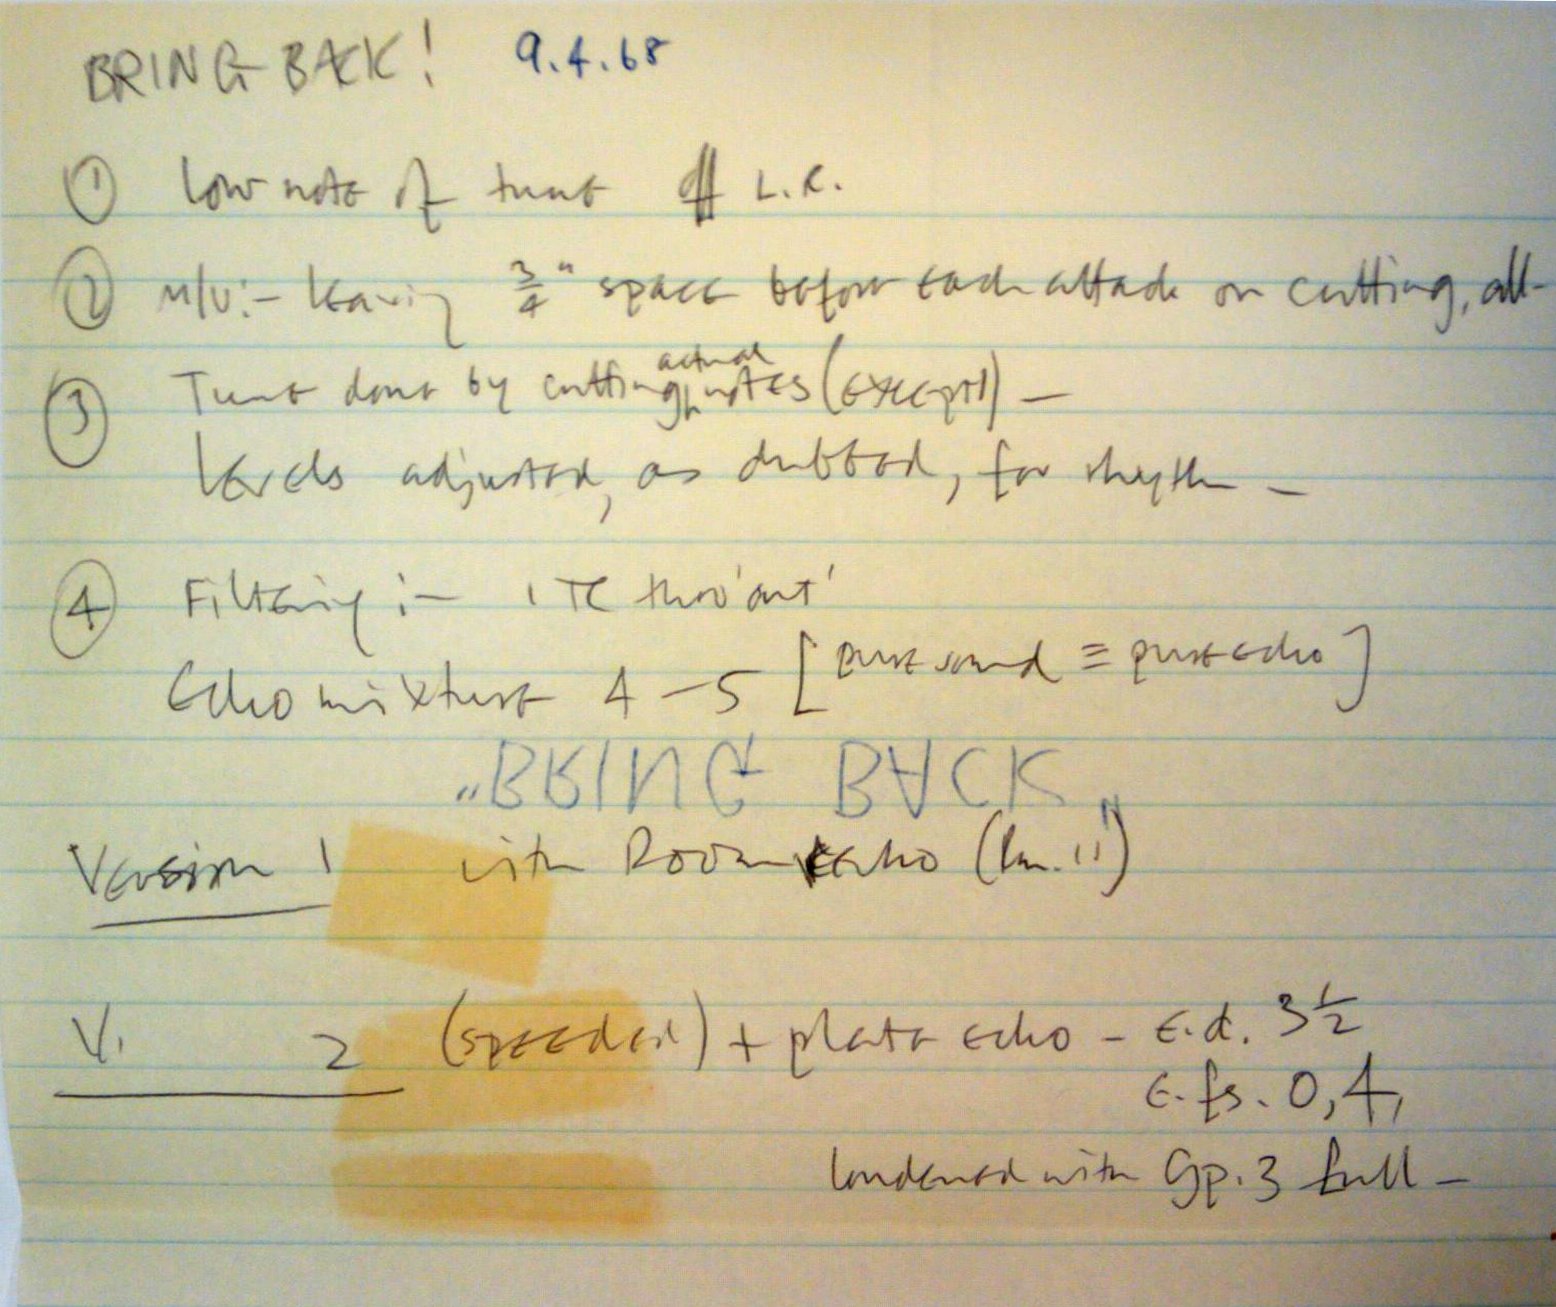 BRING BACK! 9.4.68
① low note of tune L.R.
② M/V:- leaving 3/4" space before each attack on cutting, all-
actual
③ Tune done by cutting notes (except) —
levels adjusted, as dubbed, for rhythm —
④ Filtering :- 1 TC thro'out'
Echo mixture 4 - 5 [pure sound ≡ pure echo]
"BRING BACK"
Version 1 with Room echo (Rm. 11)
V. 2 (speeded) + plate echo - E.d. 3½
E.fs. 0,4,
loudened with Gp. 3 full —